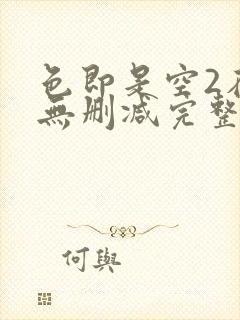 色即呆空2在
無刪減完整
何與